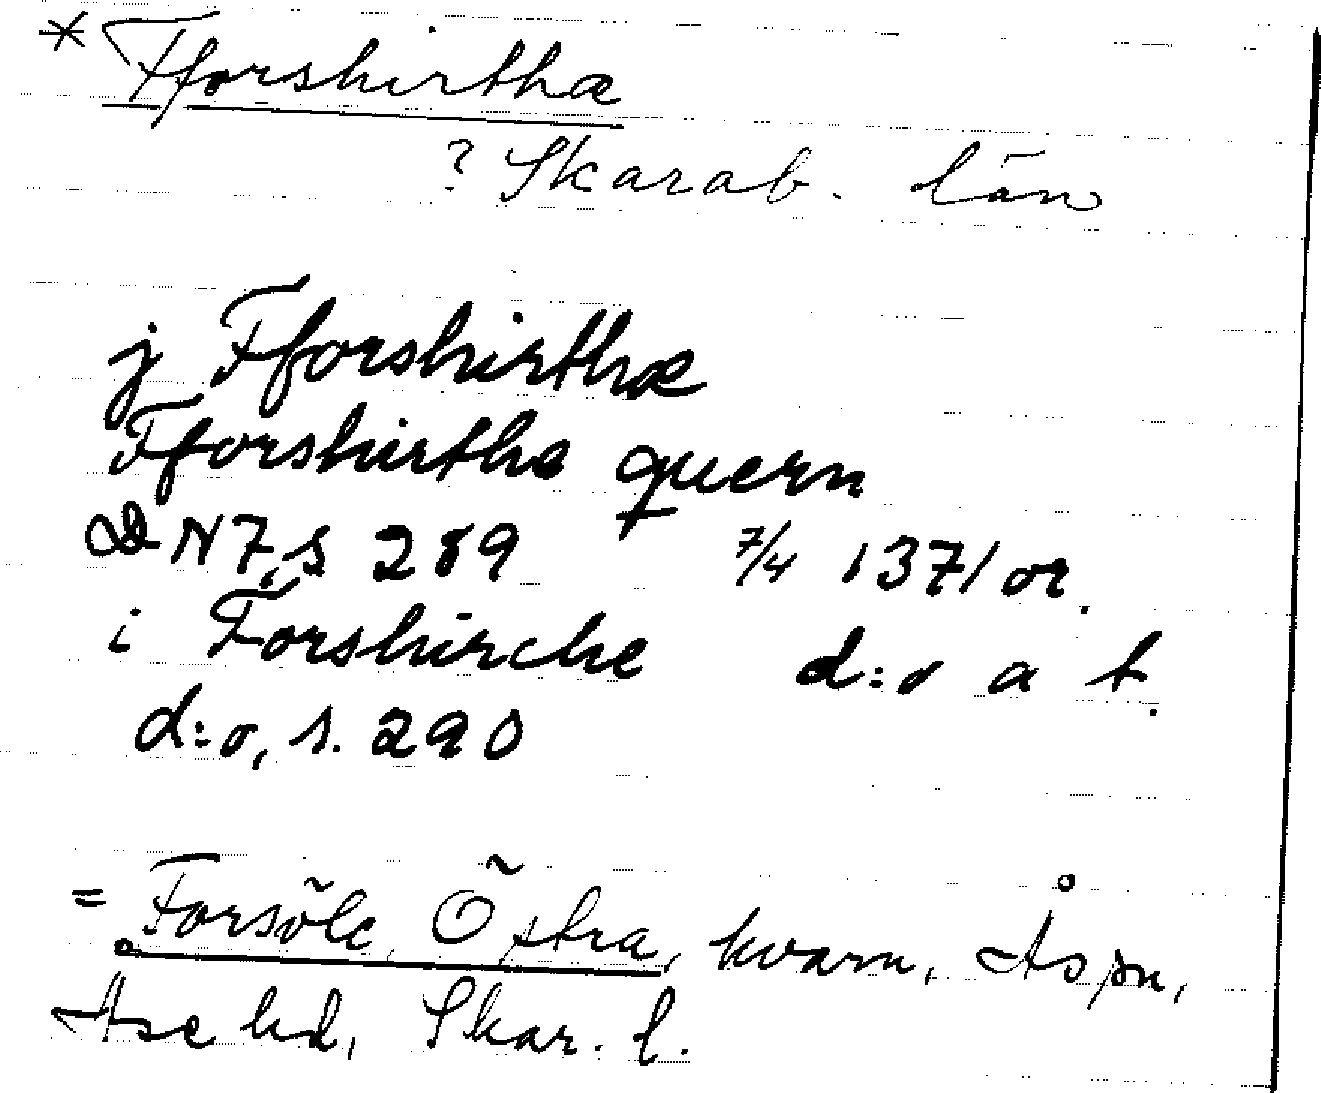 * Fforshirthæ
? Skarab. län
j Fforshirthæ
Fforshirtha quern
DN 7, s 289 7/4 1371 or.
i Forshirche d:o a t.
d:o, s. 290
= Forsöle, Östra, kvarn, Ås sn,
Åse hd, Skar. l.